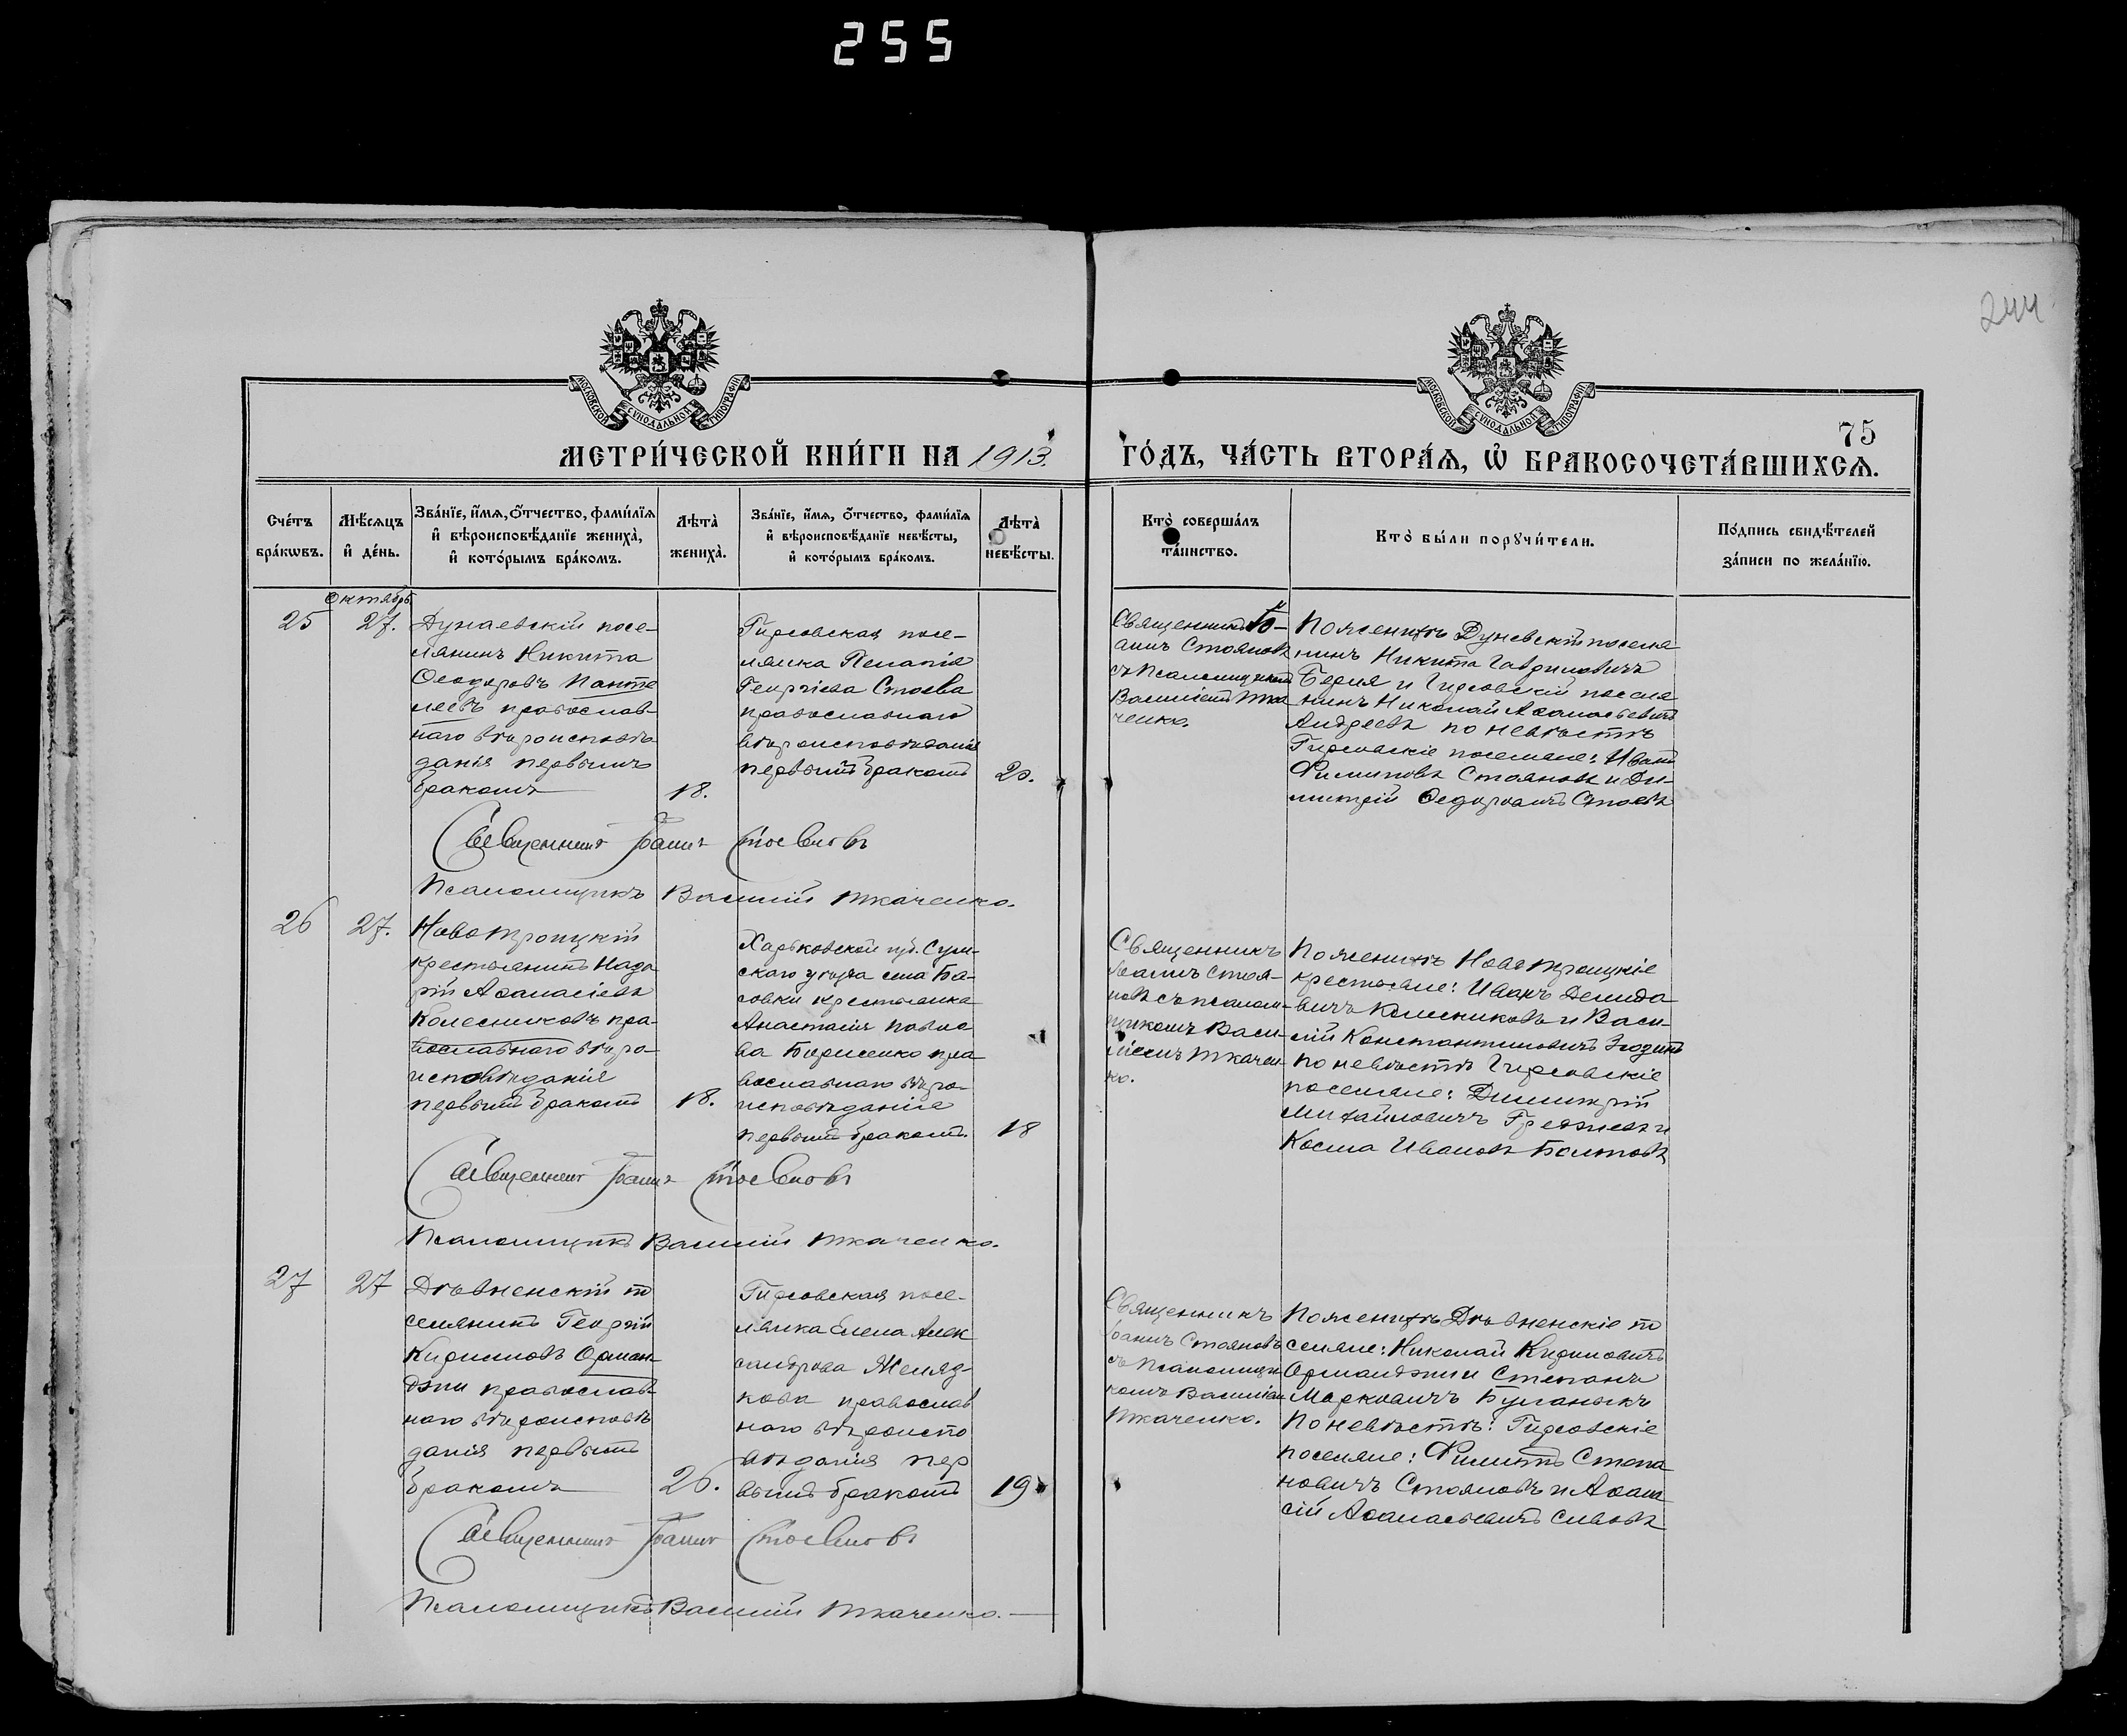 255
244
МОСКОВСКОЙ СУНОДАЛЬНОЙ ТИПОГРАФІИ
МОСКОВСКОЙ СУНОДАЛЬНОЙ ТИПОГРАФІИ
75
МЕТРИ́ЧЕСКОЙ КНИ́ГИ НА 1913. ГО́ДЪ, ЧА́СТЬ ВТОРА́Ѧ, Ѽ БРАКОСОЧЕТА́ВШИХСѦ.
Сче́тъ
бра́кѡвъ.
Мѣ́сѧцъ
и҆ де́нь.
Зва́нїе, и҆́мѧ, ѻ҆́тчество, фами́лїѧ
и҆ вѣроисповѣ́данїе жениха̀,
и҆ кото́рымъ бра́комъ.
Лѣта̀
жениха̀.
Зва́нїе, и҆́мѧ, ѻ҆́тчество, фами́лїѧ
и҆ вѣроисповѣ́данїе невѣ́сты,
и҆ кото́рымъ бра́комъ.
Лѣта̀
невѣ́сты.
Кто̀ соверша́лъ
та́инство.
Кто̀ бы́ли порꙋчи́тели.
По́дпись свидѣ́телей
за́писи по жела́нїю.
Октябрь
25
27.
Дунаевскій посе-
лянинъ Никита
Ѳеодоровъ Панте
леевъ православ-
наго вѣроисповѣ-
данія первымъ
бракомъ
18.
Гирсовская посе-
лянка Пелагія
Георгіева Стоева
православнаго
вѣроисповѣданія
первымъ бракомъ
20.
Священникъ Іо-
аннъ Стояновъ
съ псаломщикомъ
Василіемъ Тка
ченко.
По женихѣ Дунаевскій поселя
нинъ Никита Гавриловичъ
и Гирсовскій поселя
нинъ Николай Аѳанасьевичъ
Андреевъ по невѣстѣ
Гирсовскіе поселяне: Иванъ
Филиповъ Стояновъ и Ди-
митрій Ѳедоровичъ Стоевъ
Священникъ Іоаннъ Стояновъ
Псаломщикъ Василій Ткаченко.
26
27.
Новотроицкій
крестьянинъ Наза
рій Аѳанасіевъ
Колесниковъ пра-
вославнаго вѣро-
исповѣданія
первымъ бракомъ
18.
Харьковской губ. Сум-
скаго уѣзда села Ба-
совки крестьянка
Анастасія Павло
ва Борисенко пра
вославнаго вѣро-
исповѣданія
первымъ бракомъ.
18
Священникъ
Іоаннъ Стоя-
новъ съ псалом-
щикомъ Васи-
ліемъ Ткачен-
ко.
По женихѣ Новотроицкіе
крестьяне: Иванъ Демидо
вичъ Колесниковъ и Васи-
лій Константиновичъ
по невѣстѣ Гирсовскіе
поселяне: Димитрій
Михайловичъ и
Косма Ивановъ Болтовъ
Священникъ Іоаннъ Стояновъ
Псаломщикъ Василій Ткаченко.
27
27
Дѣвненскій по
селянинъ Георгій
Кириловъ Орман-
джи православ
наго вѣроисповѣ
данія первымъ
бракомъ
20.
Гирсовская посе-
лянка Елена Алек
сандрова Желяз-
кова православ
наго вѣроиспо
вѣданія пер
вымъ бракомъ
19
Священникъ
Іоаннъ Стояновъ
съ псаломщи
комъ Василіемъ
Ткаченко.
По женихѣ Дѣвненскіе по
селяне: Николай Кириловичъ
Орманджи и Степанъ
Марковичъ
По невѣстѣ: Гирсовскіе
поселяне: Филипъ Степа
новичъ Стояновъ и Аѳана
сій Аѳанасьевичъ Сивовъ
Священникъ Іоаннъ Стояновъ
Псаломщикъ Василій Ткаченко.